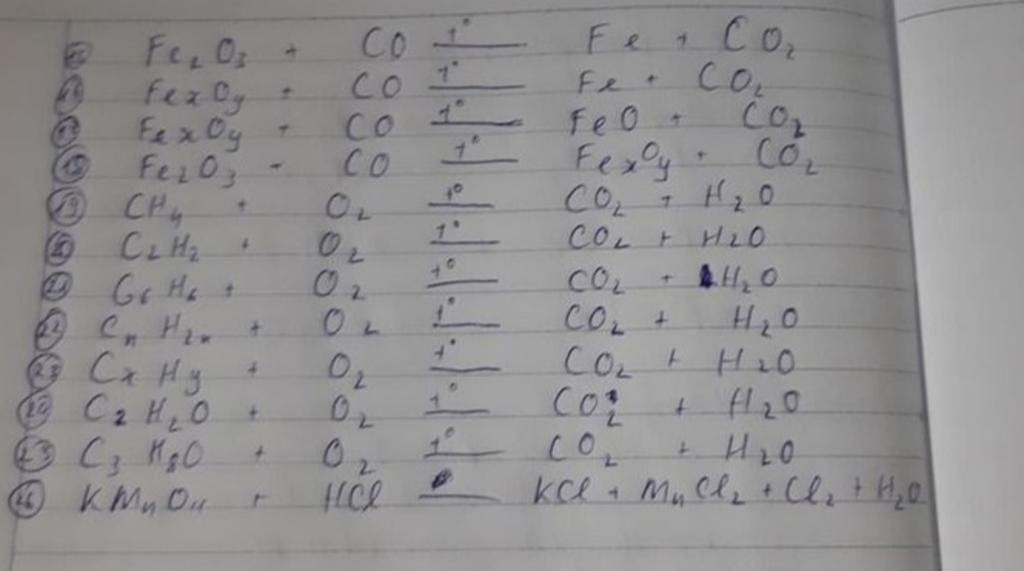 Fe₂O₃ + CO t° Fe + CO₂
FexOy + CO t° Fe + CO₂
17 FexOy + CO t° FeO + CO₂
18 Fe₂O₃ - CO t° FexOy + CO₂
19 CH₄ + O₂ t° CO₂ + H₂O
C₂H₂ + O₂ t° CO₂ + H₂O
21 C₆H₆ + O₂ t° CO₂ + H₂O
22 CnH₂n + O₂ t° CO₂ + H₂O
23 CxHy + O₂ t° CO₂ + H₂O
C₂H₂O + O₂ t° CO₂ + H₂O
25 C₃H₈O + O₂ t° CO₂ + H₂O
26 KMnO₄ + HCl KCl + MnCl₂ + Cl₂ + H₂O